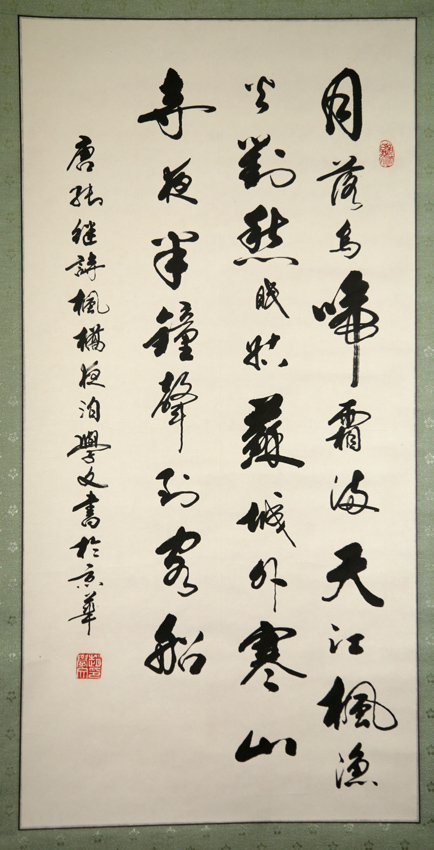 月落烏啼霜滿天江楓漁
火對愁眠姑蘇城外寒山
寺夜半鐘聲到客船
唐張继詩楓橋夜泊學文書於京華